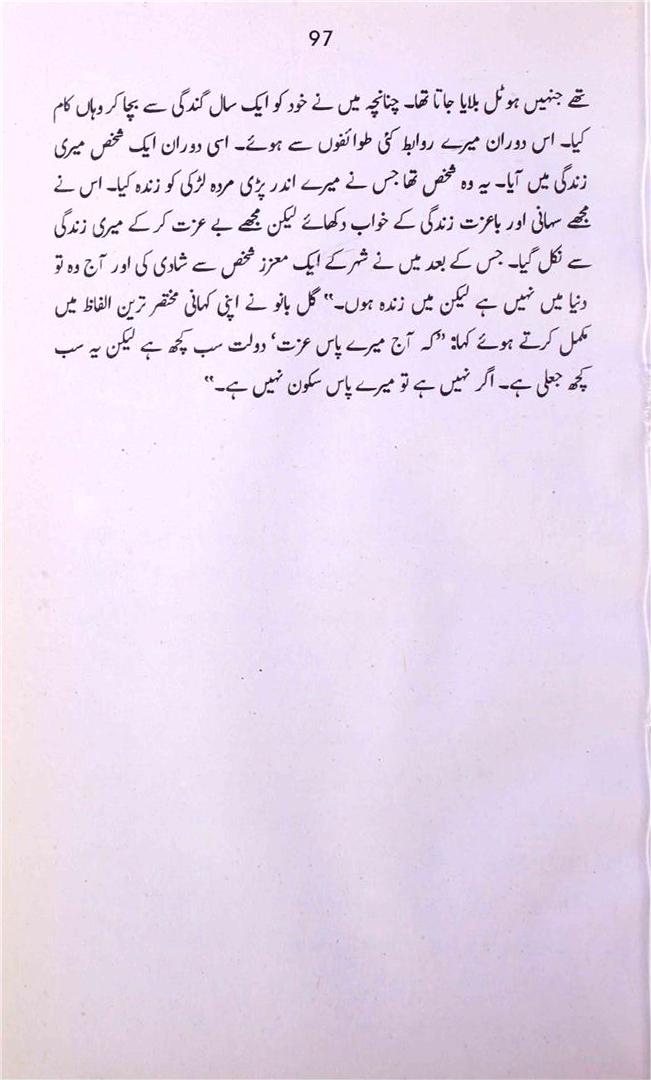 97
تھے جنہیں ہوٹل بلایا جاتا تھا۔ چنانچہ میں نے خود کو ایک سال گندگی سے بچا کر وہاں کام
کیا۔ اس دوران میرے روابط کئی طوائفوں سے ہوئے۔ اسی دوران ایک شخص میری
زندگی میں آیا۔ یہ وہ شخص تھا جس نے میرے اندر پڑی مردہ لڑکی کو زندہ کیا۔ اس نے
مجھے سہانی اور باعزت زندگی کے خواب دکھائے لیکن مجھے بے عزت کر کے میری زندگی
سے نکل گیا۔ جس کے بعد میں نے شہر کے ایک معزز شخص سے شادی کی اور آج وہ تو
دنیا میں نہیں ہے لیکن میں زندہ ہوں۔“ گل بانو نے اپنی کہانی مختصر ترین الفاظ میں
مکمل کرتے ہوئے کہا: ”کہ آج میرے پاس عزت‘ دولت سب کچھ ہے لیکن یہ سب
کچھ جعلی ہے۔ اگر نہیں ہے تو میرے پاس سکون نہیں ہے۔“